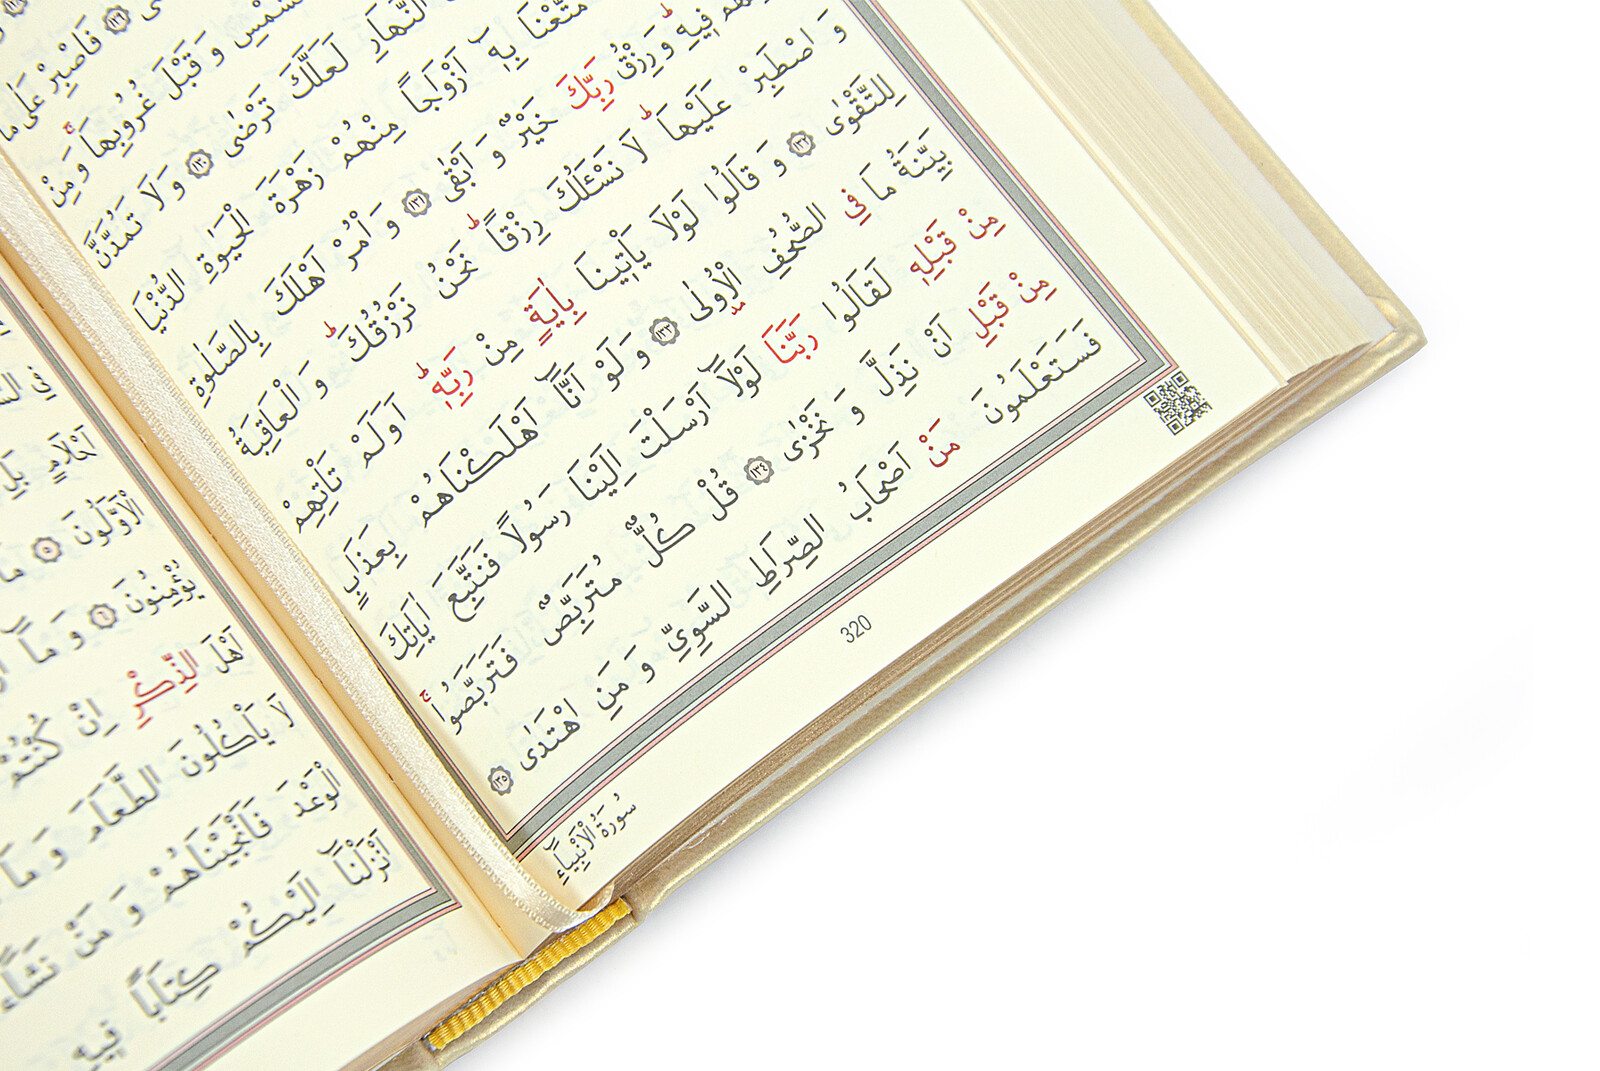 فَاصْبِرْ عَلٰى مَا
الشَّمْسِ وَ قَبْلَ غُرُوبِهَاۚ وَ مِنْ
النَّهَارِ لَعَلَّكَ تَرْضٰى ﴿١٣٠﴾ وَ لَا تَمُدَّنَّ
مَتَّعْنَا بِه۪ٓ اَزْوَاجًا مِنْهُمْ زَهْرَةَ الْحَيٰوةِ الدُّنْيَا
فِيهِۜ وَ رِزْقُ رَبِّكَ خَيْرٌ وَ اَبْقٰى ﴿١٣١﴾ وَ اْمُرْ اَهْلَكَ بِالصَّلٰوةِ
وَ اصْطَبِرْ عَلَيْهَاۜ لَا نَسْـَٔلُكَ رِزْقًاۜ نَحْنُ نَرْزُقُكَۜ وَ الْعَاقِبَةُ
لِلتَّقْوٰى ﴿١٣٢﴾ وَ قَالُوا لَوْلَا يَاْتِينَا بِاٰيَةٍ مِنْ رَبِّه۪ۜ اَوَلَمْ تَاْتِهِمْ
بَيِّنَةُ مَا فِي الصُّحُفِ الْاُولٰى ﴿١٣٣﴾ وَ لَوْ اَنَّٓا اَهْلَكْنَاهُمْ بِعَذَابٍ
مِنْ قَبْلِه۪ لَقَالُوا رَبَّنَا لَوْلَٓا اَرْسَلْتَ اِلَيْنَا رَسُولًا فَنَتَّبِعَ اٰيَاتِكَ
مِنْ قَبْلِ اَنْ نَذِلَّ وَ نَخْزٰى ﴿١٣٤﴾ قُلْ كُلٌّ مُتَرَبِّصٌ فَتَرَبَّصُواۚ
فَسَتَعْلَمُونَ مَنْ اَصْحَابُ الصِّرَاطِ السَّوِيِّ وَ مَنِ اهْتَدٰى ﴿١٣٥﴾
320
سُورَةُ الْاَنْبِيَٓاءِ
اَحْلَامٍ بَلِ
الْاَوَّلُونَ ﴿٥﴾ مَا
يُؤْمِنُونَ ﴿٦﴾ وَ مَٓا
اَهْلَ الذِّكْرِ اِنْ كُنْتُمْ
لَا يَاْكُلُونَ الطَّعَامَ وَ مَا
الْوَعْدَ فَاَنْجَيْنَاهُمْ وَ مَنْ نَشَٓاءُ
اَنْزَلْنَٓا اِلَيْكُمْ كِتَابًا فِيهِ